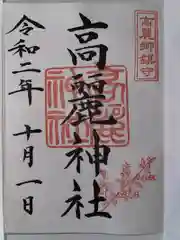 高麗郷鎮守
高麗神社
令和二年 十月一日
高麗神社